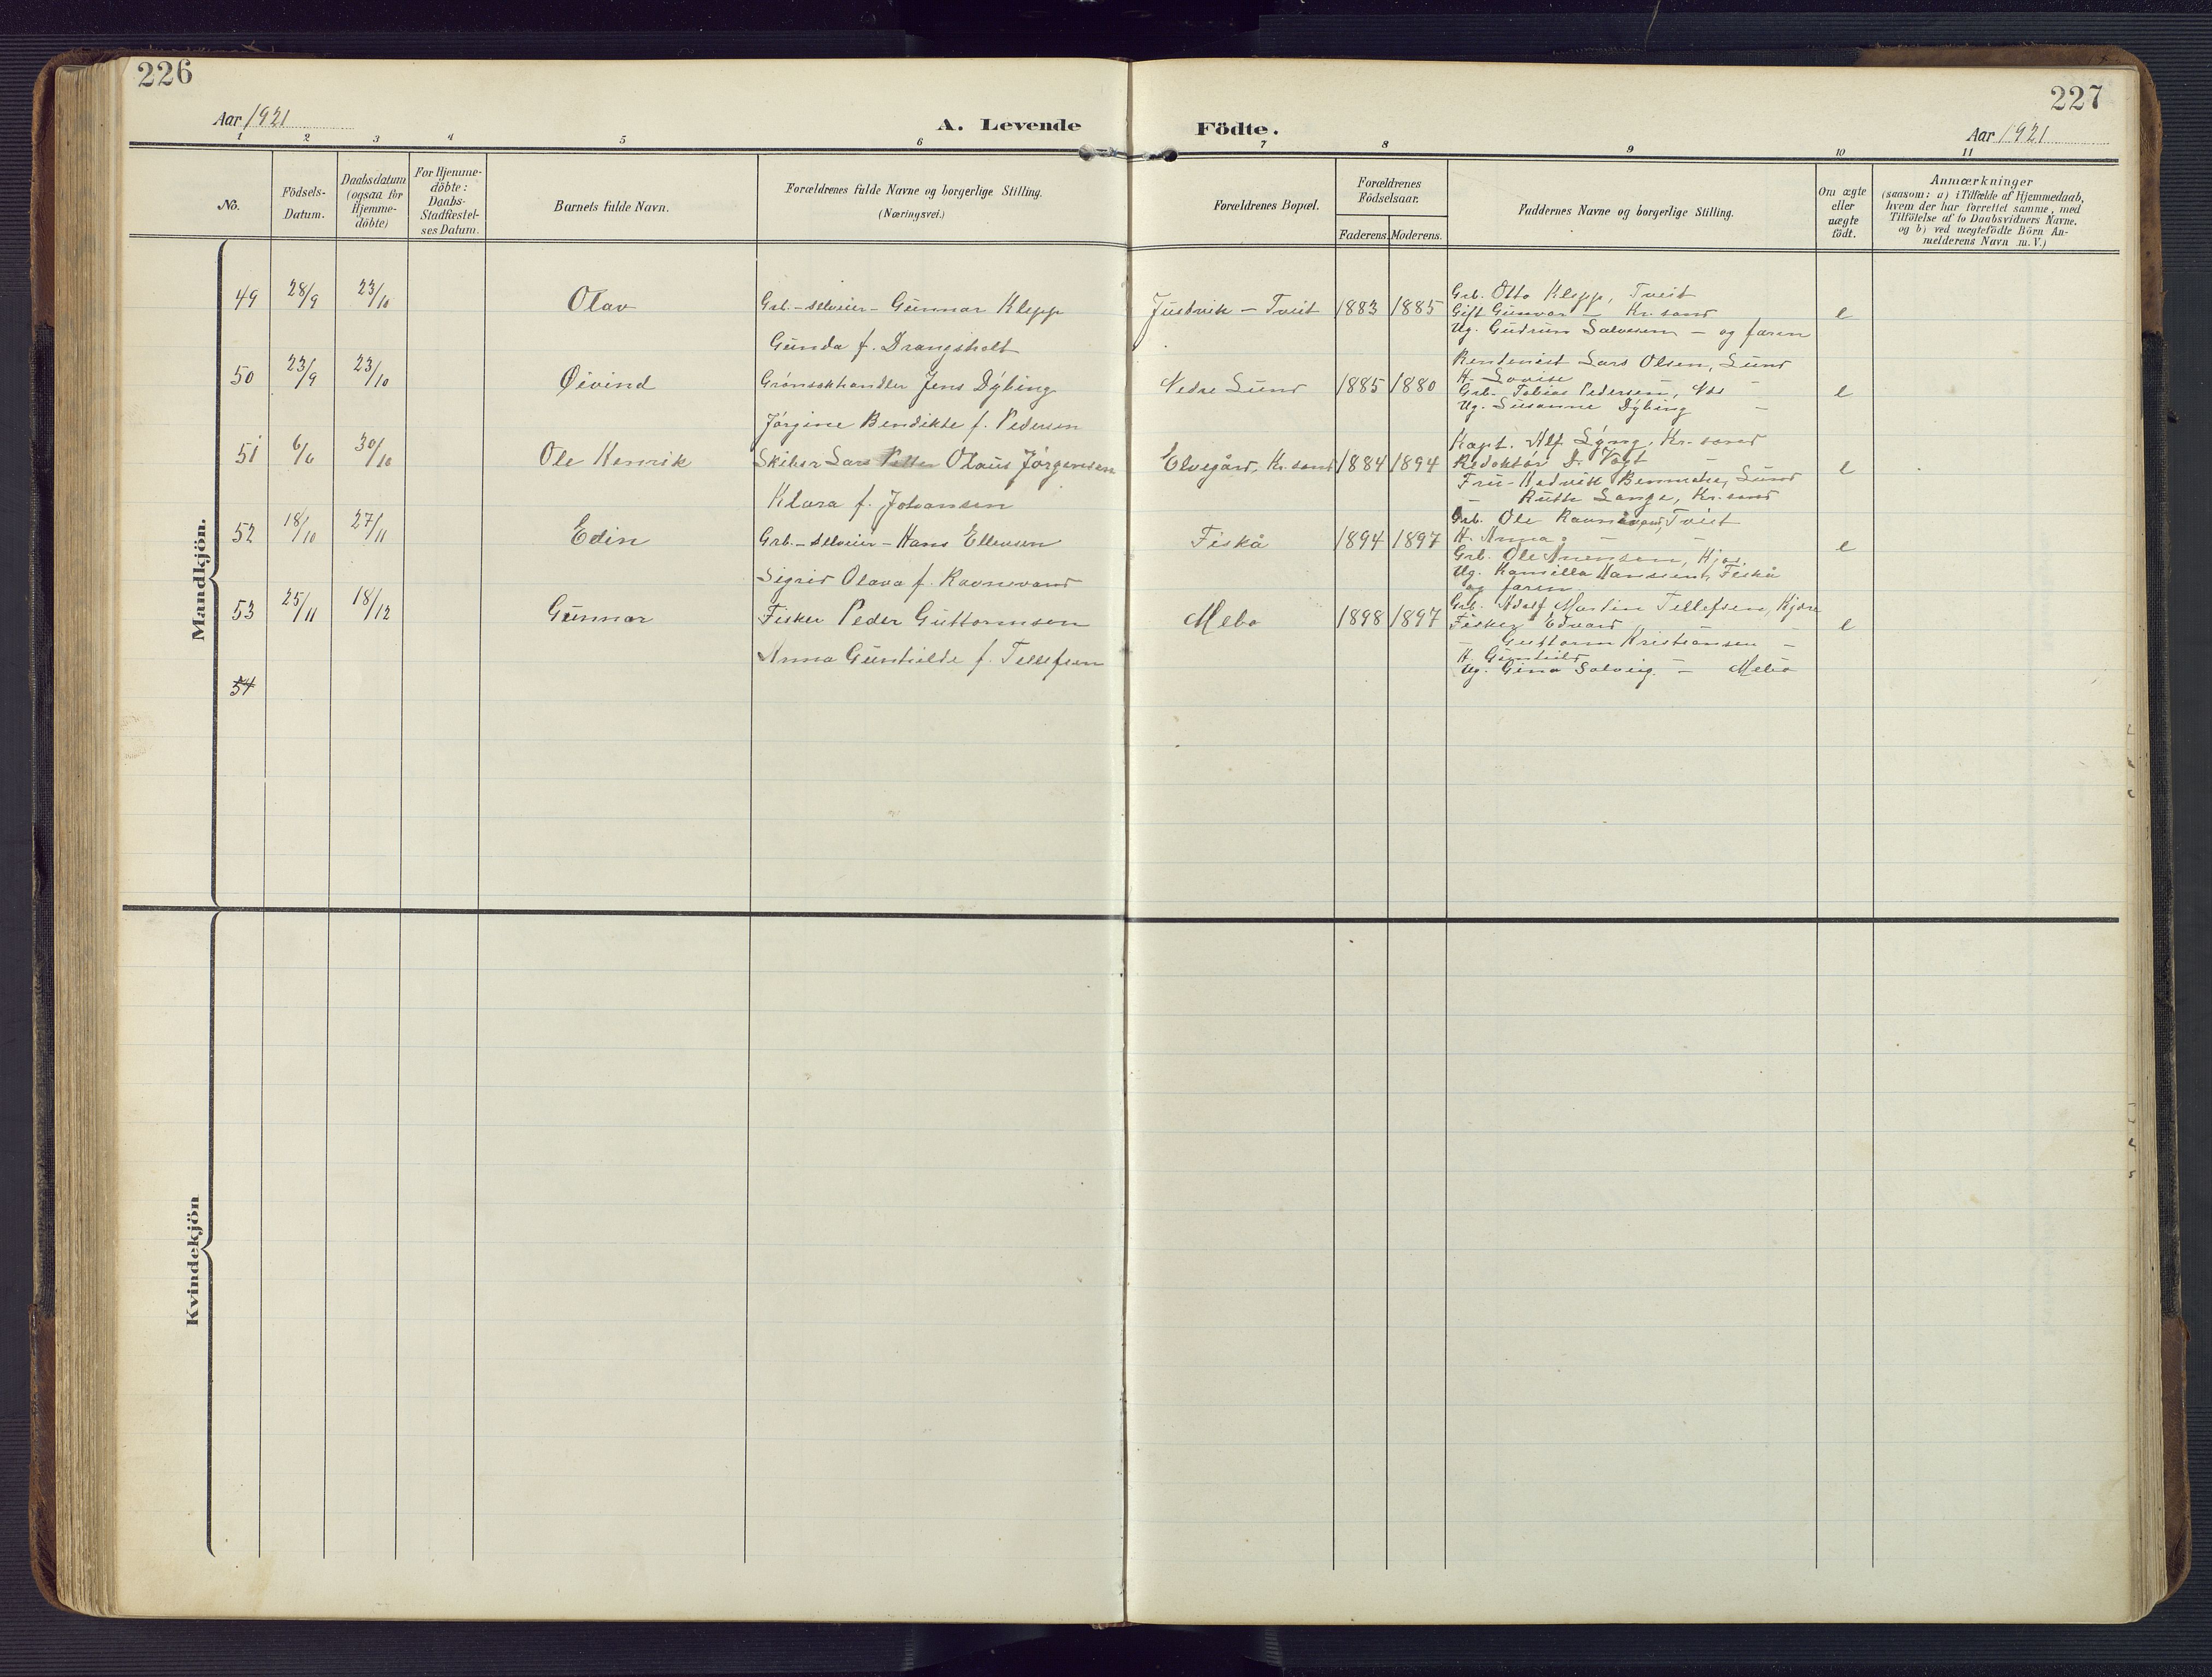 226
227
Aar 1921
A. Levende Födte.
Aar 1921
1 2 3 4 5 6 7 8 9 10 11
No.
Födsels-Datum.
Daabsdatum (ogsaa for Hjemme-döbte)
For Hjemme-döbte: Daabs-Stadfæstel-ses Datum.
Barnets fulde Navn.
Forældrenes fulde Navne og borgerlige Stilling.
(Næringsvei.)
Forældrenes Bopæl.
Forældrenes Födselsaar.
Faderens. Moderens.
Faddernes Navne og borgerlige Stilling.
Om ægte eller uægte födt.
Anmærkninger
(saasom: a) i Tilfælde af Hjemmedaab,
hvem der har forrettet samme, med
Tilföielse af to Daabsvidners Navne.
og b) ved uægtefödte Börn An-
melderens Navn m. V.)
Mandkjön.
49 28/9 23/10 Olav Grb.-selveier- Gunnar Klepp Justvik - Tveit 1883 1885 e
Gunda f. Drangsholt
Grb. Otto Klepp, Tveit
Gift Gunvor - Kr.sand
Ug. Gudrun Salvesen - og faren
50 23/9 23/10 Øivind Grønsakhandler Jens Dybing Nedre Lund 1885 1880 e
Jørgine Bendikte f. Pedersen
Rentenist Lars Olsen, Lund
H. Lovise
Grb. Tobias Pedersen, -
Ug. Susanne Dybing -
51 6/6 30/10 Ole Henrik Lars Petter Olaus Jørgensen Elvegård, Kr.sand 1884 1894 e
Klara f. Johansen
Kapt. Alf Lyng, Kr.sand
Redaktør D. Vogt -
Fru Lund
- Ruth Lange, Kr.sand
52 18/10 27/11 Edin Grb.-selveier- Hans Ellevsen Fiskå 1894 1897 e
Sigrid Olava f. Ravnevand
Grb. Ole Ravnevand, Tveit
H. Anna - -
Grb. Ole
Ug. Kamilla Fiskå
og faren.
53 25/11 18/12 Gunnar Fisker Peder Guttormsen Mebø 1898 1897 e
Anna Gunhilde f. Tellefsen
Grb. Adolf Martin Tellefsen, Kjære
Fisker Edvard
- Guttorm Kristiansen -
H. Gunhild
Ug. Gina Solveig - Mebø
54
Kvindekjön